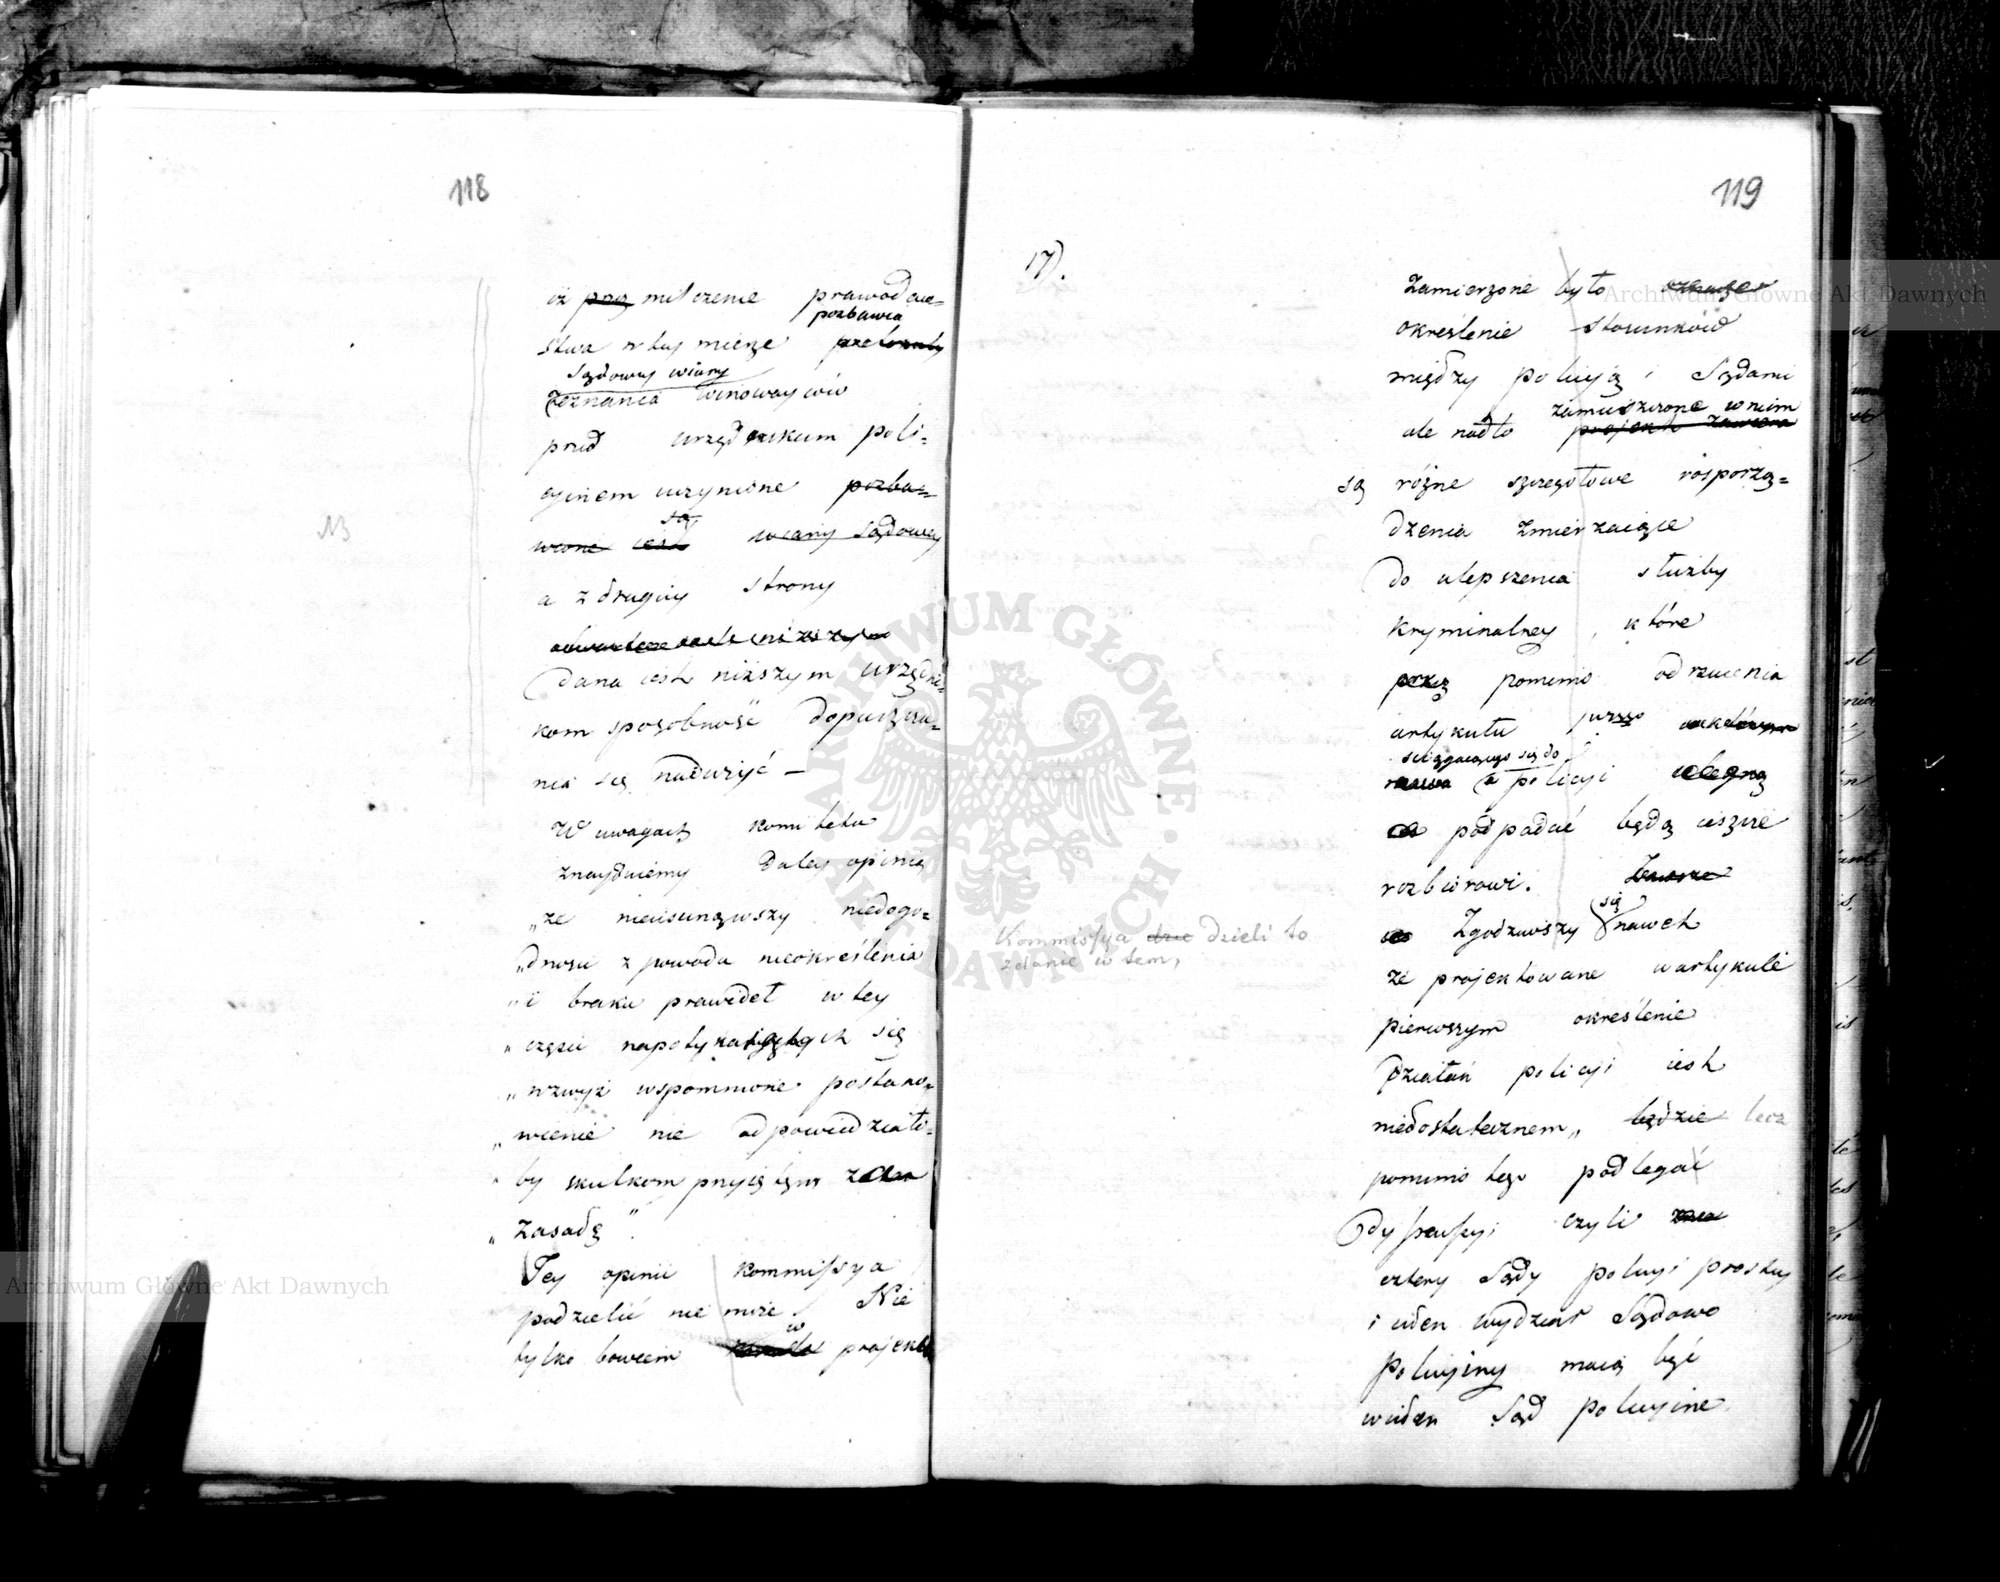 118
iż przez milczenie prawodaw=
pozbawia
stwa w tey mierze
sądowey wiary
zeznania winowayców
przed urzędnikiem poli=
cyinem uczynione pozba=
są
wione iest wiary sądowey
a z drugiey strony
dana iest niższym urzędni=
kom sposobność dopuszcza=
nia się nadużyć —
NB
W uwagach komitetu
znayduiemy daley opinią
„że nieusunąwszy niedogo=
„dności z powodu nieokreślenia
„i braku prawideł w tey
„części napotykaiących się
„wzwyż wspomnione postano=
„wienie nie odpowiedziało=
„by skutkom przyiętym za
„zasadę”.
Tey opinii Kommissya
podzielić nie może. Nie
w
tylko bowiem projekt
119
17).
Zamierzone było
określenie stosunków
między policyą i Sądami
zamieszczone w nim
ale nadto projekt zawiera
są różne szczegółowe rosporzą=
dzenia zmierzaiące
do ulepszenia służby
kryminalney, które
przez pomimo odrzucenia
artykułu
ściągaiącego się do
policyi
podpadać będą ieszcze
rozbiorowi.
się
Zgodziwszy nawet
Kommissya dzie dzieli to
zdanie w tem,
że projektowane w artykule
pierwszym określenie
działań policyi iest
niedostatecznem„ będzie lecz
pomimo tego podlegać
dyskussyi czyli
cztery Sądy policyi prostey
i ieden wydział Sądowo
policyiny maią być
w ieden Sąd policyine
Archiwum Główne Akt Dawnych
Archiwum Główne Akt Dawnych
ARCHIWUM GŁÓWNE AKT DAWNYCH